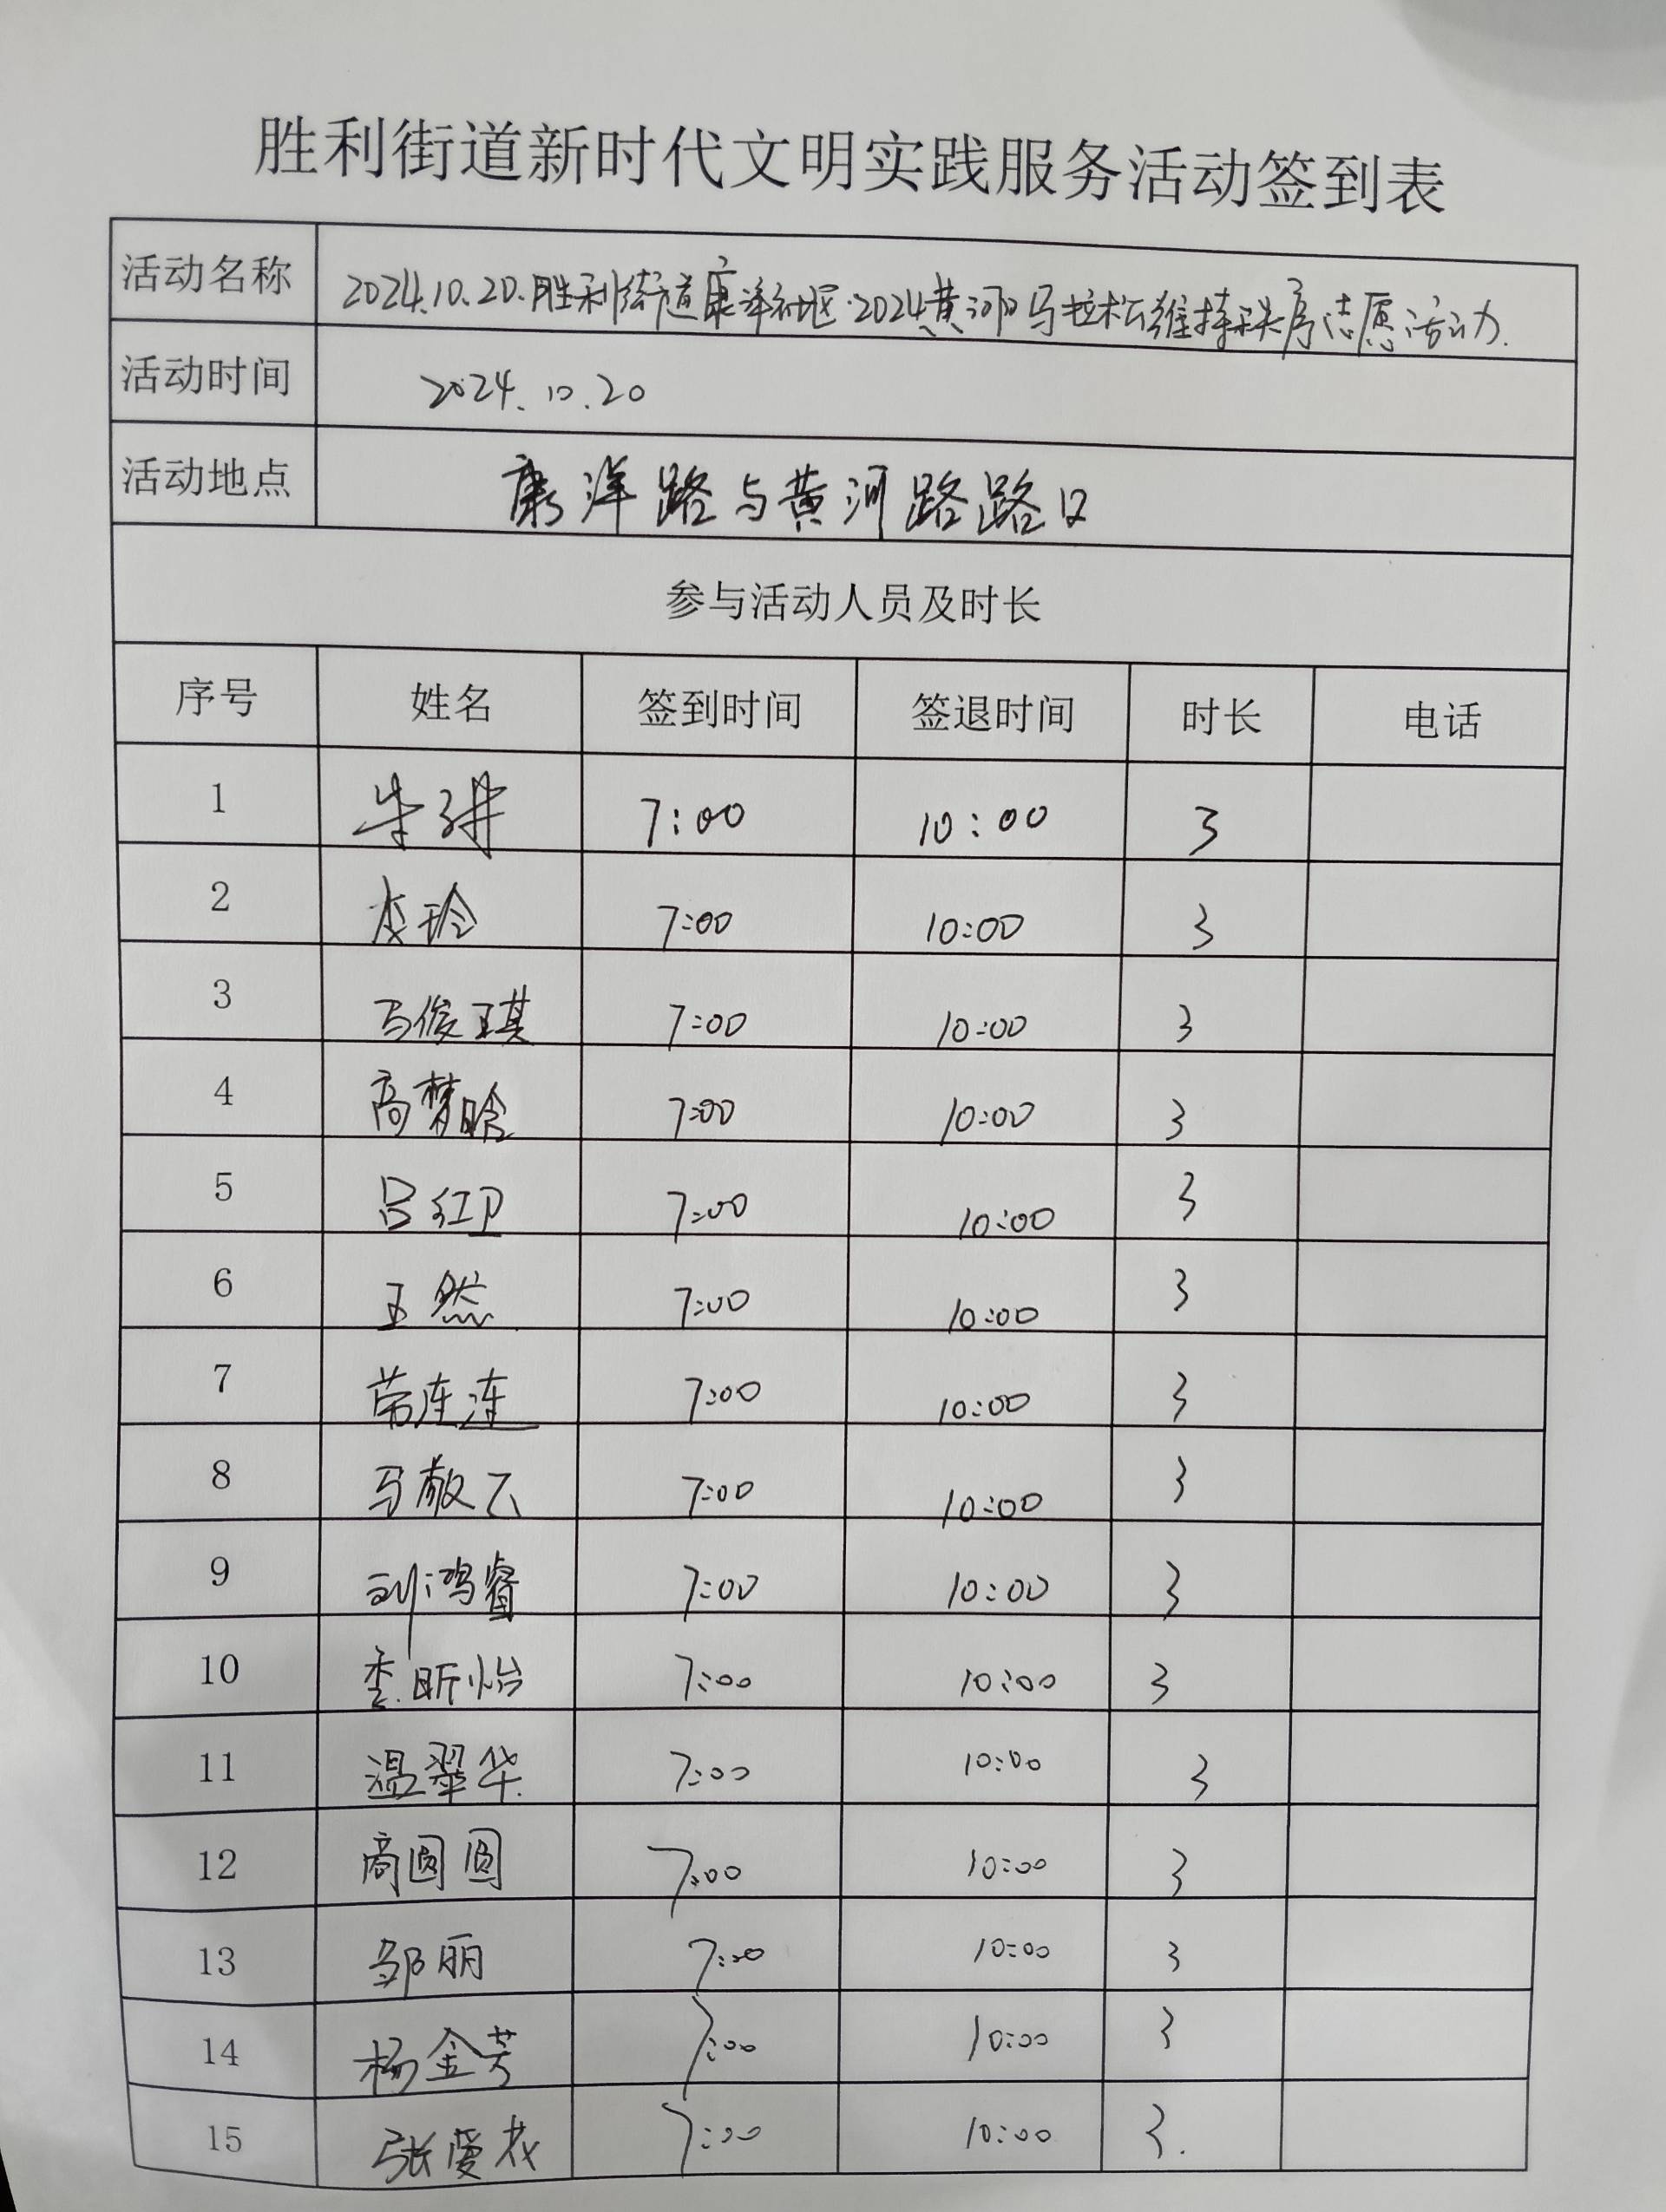 胜利街道新时代文明实践服务活动签到表
活动名称 2024.10.20.胜利街道康洋社区·2024黄河口马拉松维持秩序志愿活动.
活动时间 2024.10.20
活动地点 康洋路与黄河路路口
参与活动人员及时长
序号 姓名 签到时间 签退时间 时长 电话
1 7:00 10:00 3
2 李玲 7:00 10:00 3
3 马俊琪 7:00 10:00 3
4 高梦晗 7:00 10:00 3
5 吕红卫 7:00 10:00 3
6 王然 7:00 10:00 3
7 荣连连 7:00 10:00 3
8 马敬云 7:00 10:00 3
9 刘鸿睿 7:00 10:00 3
10 李昕怡 7:00 10:00 3
11 温翠华 7:00 10:00 3
12 商圆圆 7:00 10:00 3
13 邹丽 7:00 10:00 3
14 杨金芳 7:00 10:00 3
15 张爱花 7:00 10:00 3.